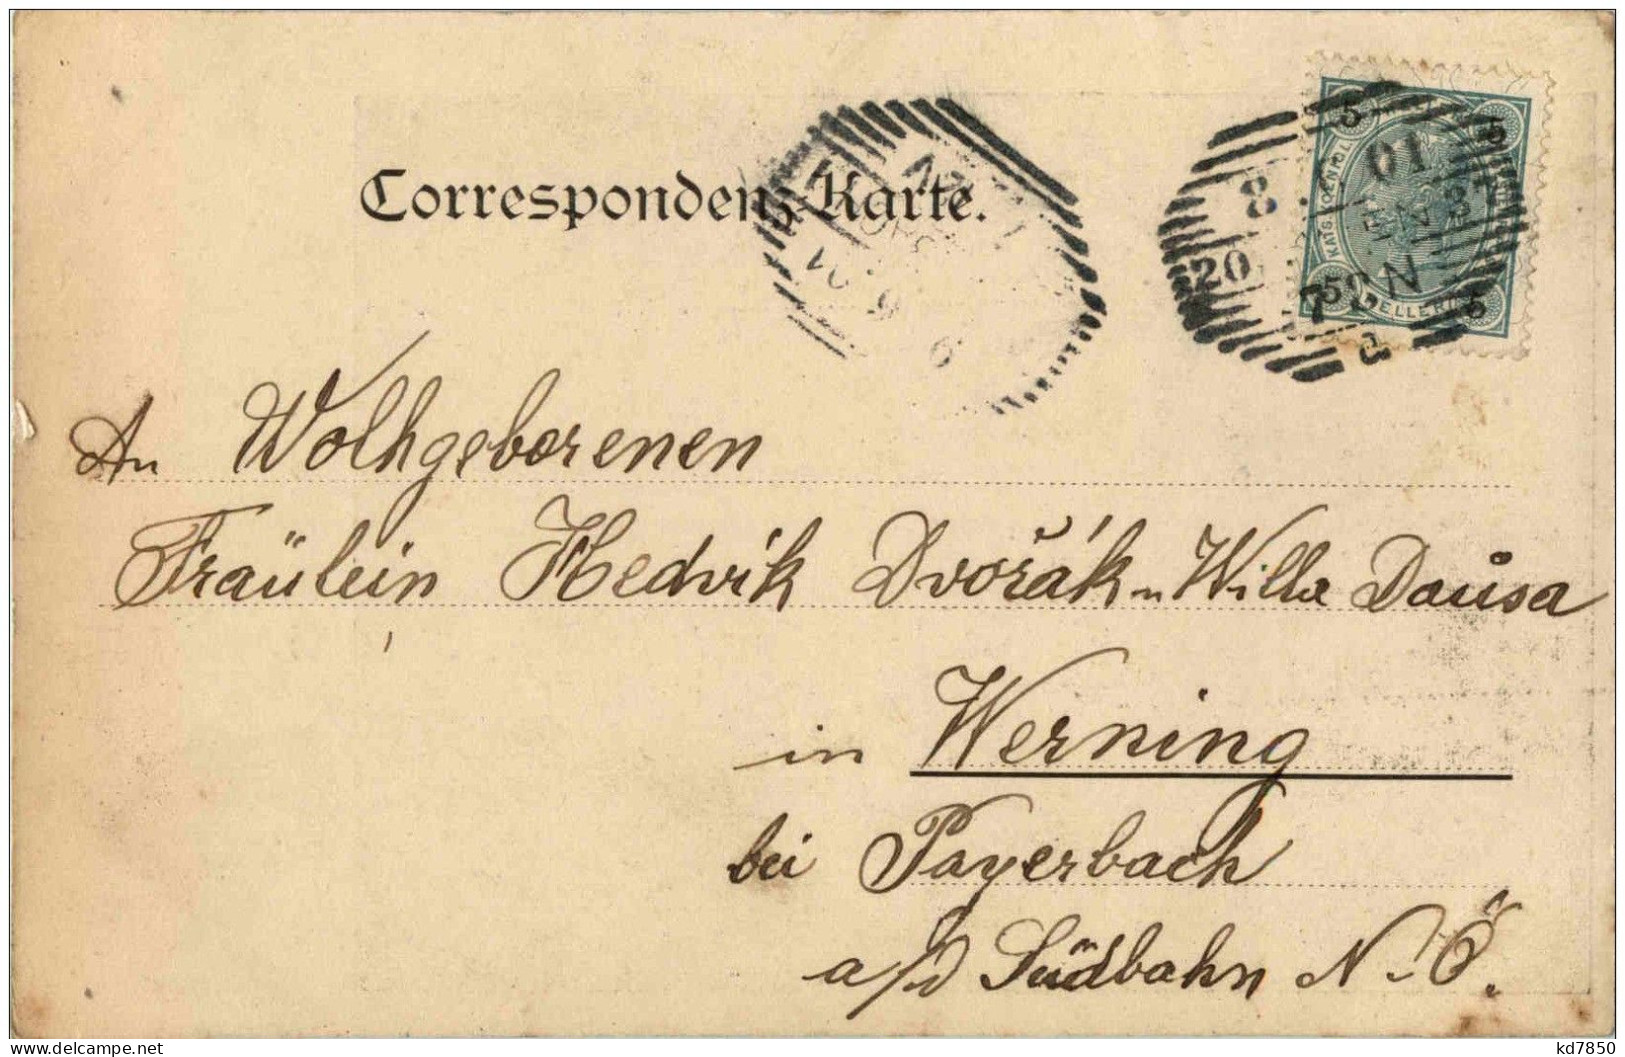 Correspondenz-Karte.
5 5
KAIS
HELLER
5 5
8
01
20
WIEN
9 6
An Wolhgeborenen
Fräulein Hedvik Dvořák u Willa Dausa
in Werning
bei Payerbach
a/d Südbahn N.Ö.
www.delcampe.net
kd7850